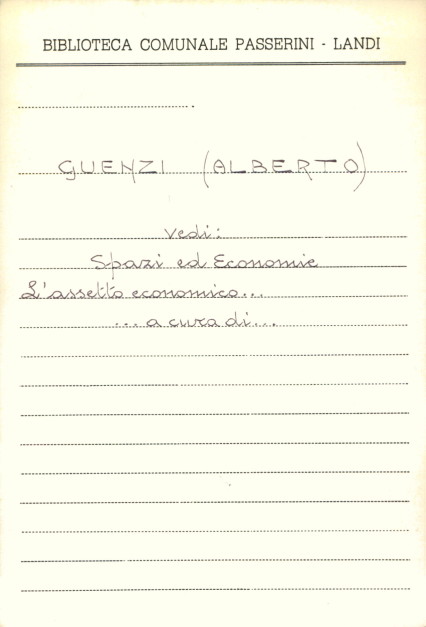 BIBLIOTECA COMUNALE PASSERINI - LANDI
GUENZI (ALBERTO)
vedi:
Spazi ed Economie
L'assetto economico...
...a cura di...